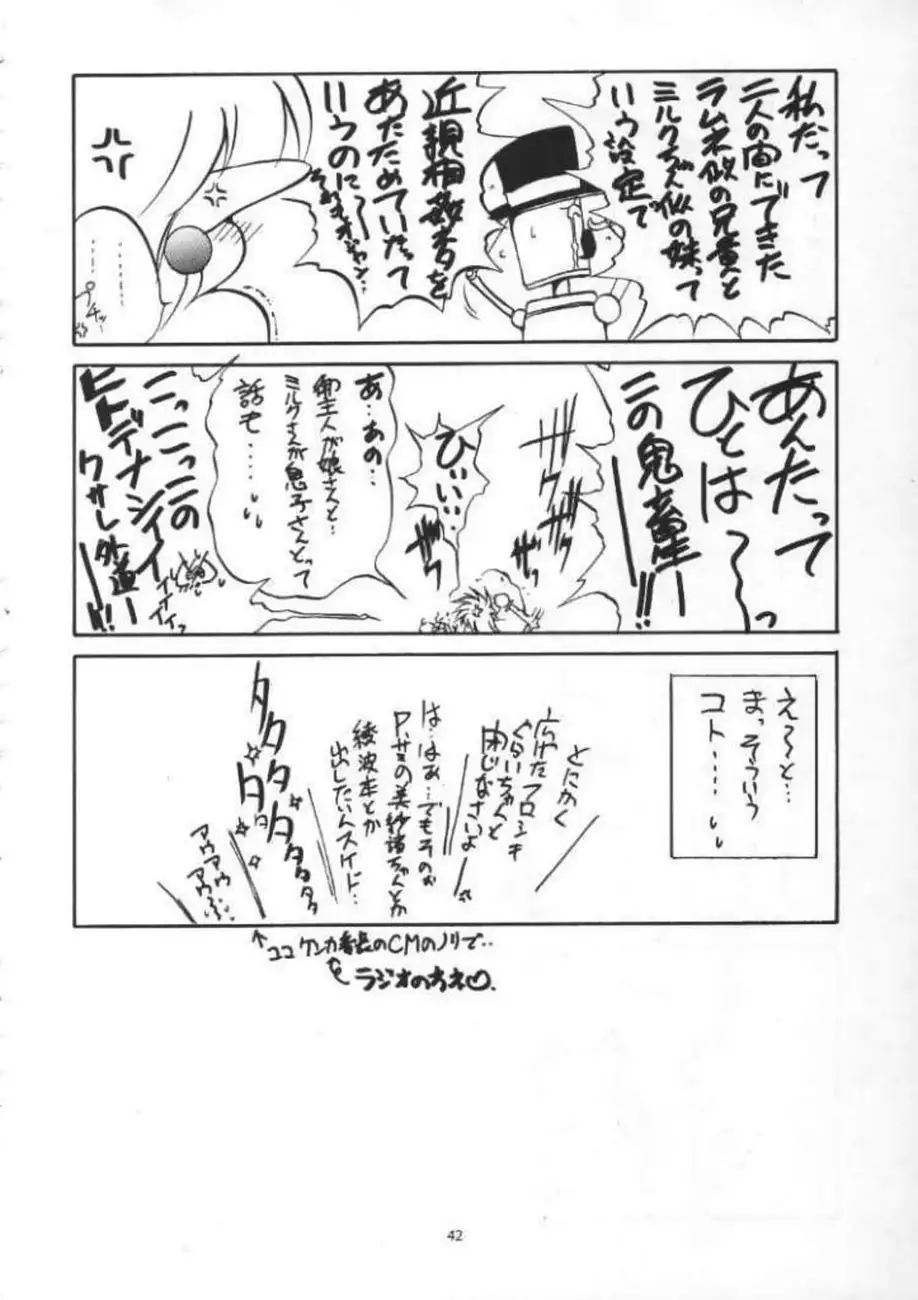 私だって
二人の間にできた
ラムネ似の兄貴と
ミルクズ似の妹って
いう設定で
近親相姦本を
あたためていたって
いうのに〜〜
プチッ…
あんたって
ひとは〜〜っ
この鬼畜ー!!
ひいぃ…
あ…あの…
御主人が娘さんと…
ミルクさんが息子さんとって
話も……
こっこっこの
ヒトデナシイイ
イイイイイっ
クサレ外道ー!!
え〜と…
まっそういう
コト……
とにかく
広げたフロシキ
ぐらいちゃんと
閉じなさいよ
は…はあ…でもそのお
P.サミの美紗緒ちゃんとか
綾波本とか
出したいんスけド…
タタタタタタタ
ダダダダ
アウアウ
アウぶ
↑ココケンカ番長のCMのノリで..
ラジオのネ♡.
42